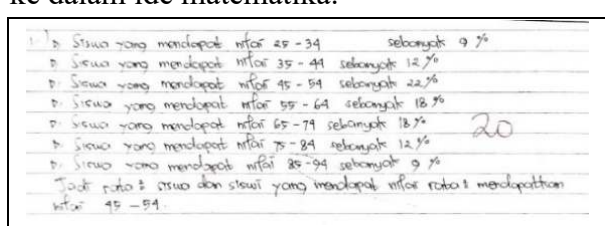 ke dalam ide matematika.
1. Siswa yang mendapat nilai 25 - 34 sebanyak 9 %
Siswa yang mendapat nilai 35 - 44 sebanyak 12 %
Siswa yang mendapat nilai 45 - 54 sebanyak 22 %
Siswa yang mendapat nilai 55 - 64 sebanyak 18 %
Siswa yang mendapat nilai 65 - 74 sebanyak 18 %
Siswa yang mendapat nilai 75 - 84 sebanyak 12 %
Siswa yang mendapat nilai 85 - 94 sebanyak 9 %
20
Jadi rata2 siswa dan siswi yang mendapat nilai rata2 mendapatkan
nilai 45 - 54.